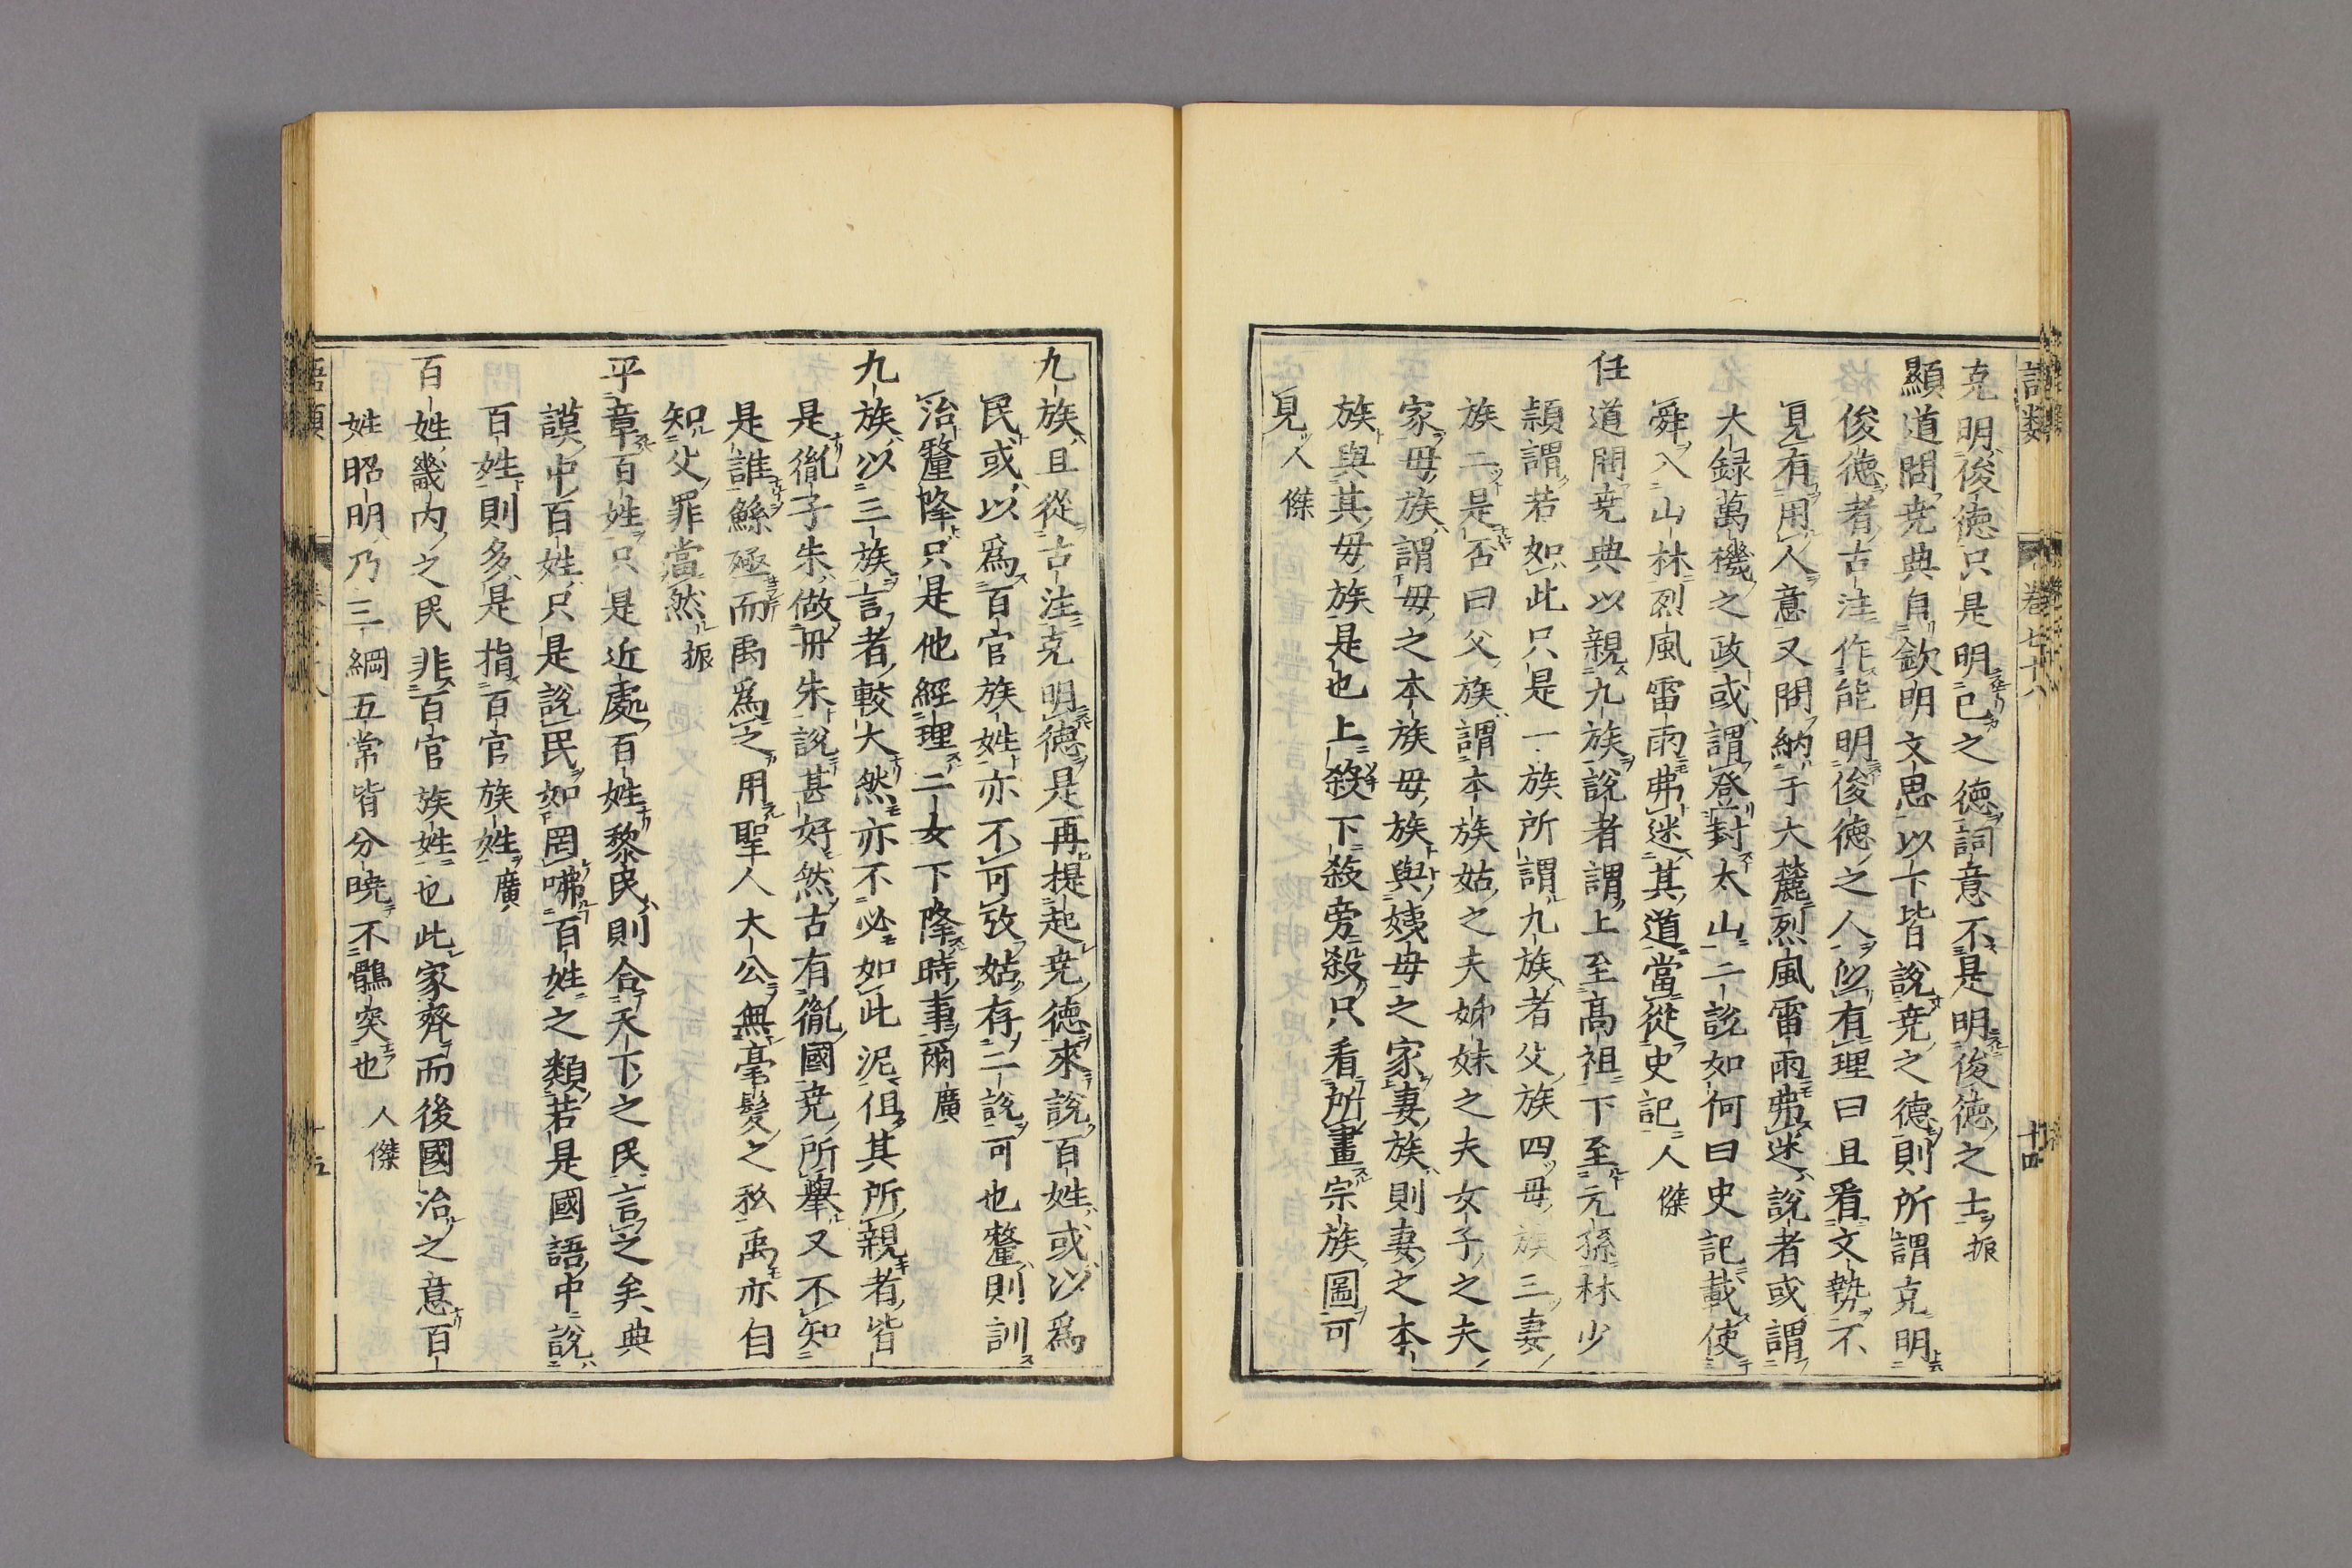 語類
卷七十八
十四
克明俊德只是明己之德詞意不是明俊德之士振
顯道問堯典自欽明文思以下皆說堯之德則所謂克明
俊德者古注作能明俊德之人似有理曰且看文勢不
見有用人意又問納于大麓烈風雷雨弗迷說者或謂
大錄萬機之政或謂登封太山二說如何曰史記載使
舜入山林烈風雷雨弗迷其道當從史記人傑
任道問堯典以親九族說者謂上至高祖下至元孫林少
頴謂若如此只是一族所謂九族者父族四母族三妻
族二是否曰父族謂本族姑之夫姊妹之夫女子之夫
家母族謂母之本族母族與姨母之家妻族則妻之本
族與其母族是也上殺下殺旁殺只看所畫宗族圖可
見人傑
九族且從古注克明德是再提起堯德來說百姓或以爲
民或以爲百官族姓亦不可攷姑存二說可也釐則訓
治釐降只是他經理二女下降時事爾廣
九族以三族言者較大然亦不必如此泥但其所親者皆
是胤子朱做丹朱說甚好然古有胤國堯所舉又不知
是誰鯀殛而禹爲之用聖人大公無毫髮之私禹亦自
知父罪當然振
平章百姓只是近處百姓黎民則合天下之民言之矣典
謨中百姓只是說民如罔咈百姓之類若是國語中說
百姓則多是指百官族姓廣
百姓畿內之民非百官族姓也此家齊而後國治之意百
姓昭明乃三綱五常皆分曉不鶻突也人傑
語類
十五